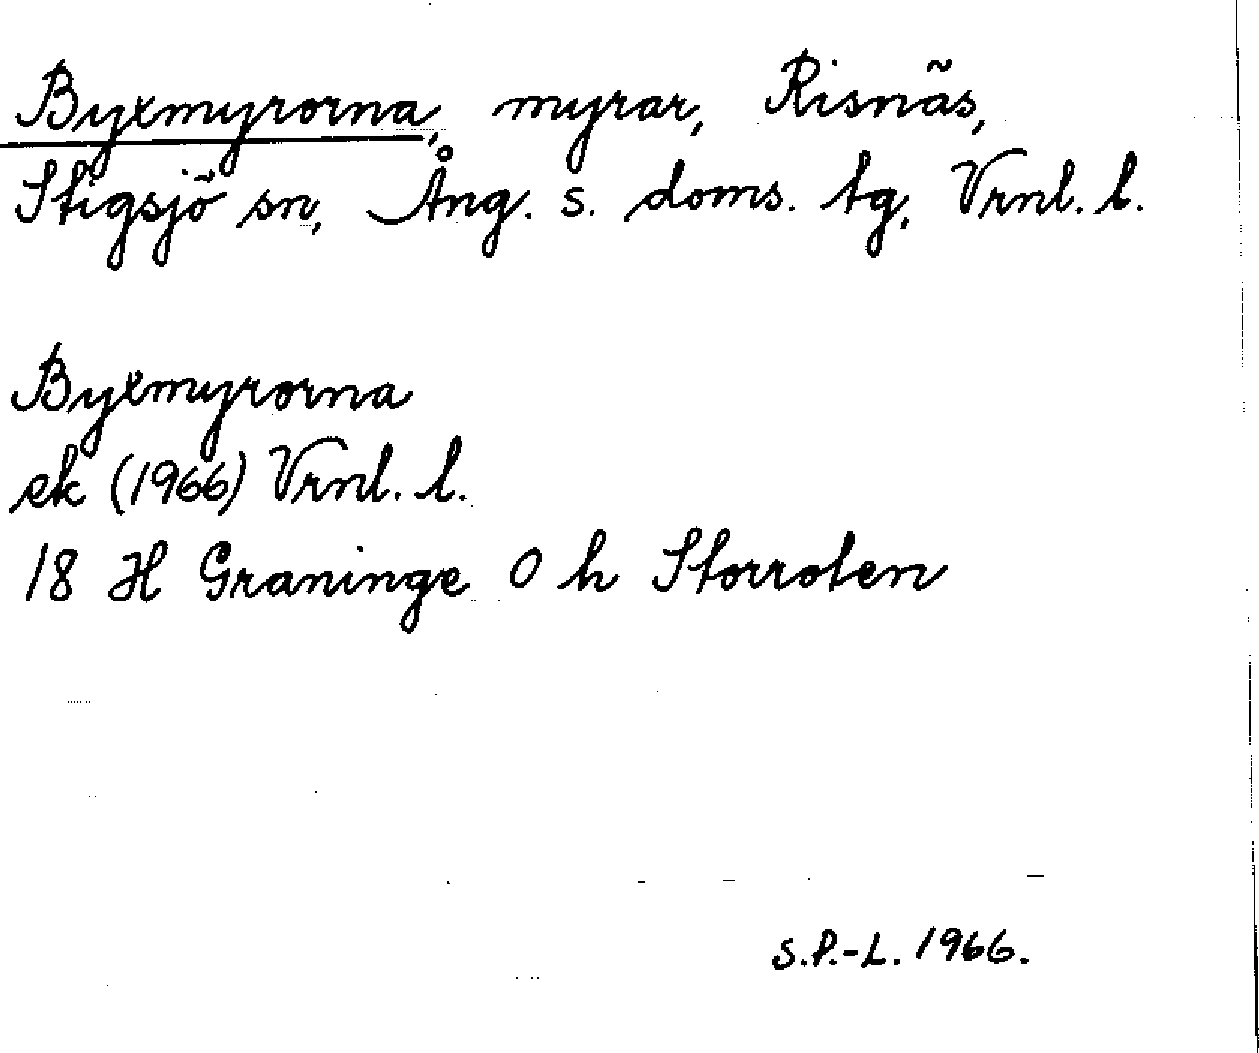 Byxmyrorna, myrar, Risnäs,
Stigsjö sn, Ång. s. doms. tg, Vrnl. l.
Byxmyrorna
ek (1966) Vrnl. l.
18 H Graninge O h Storroten
S.P.-L. 1966.